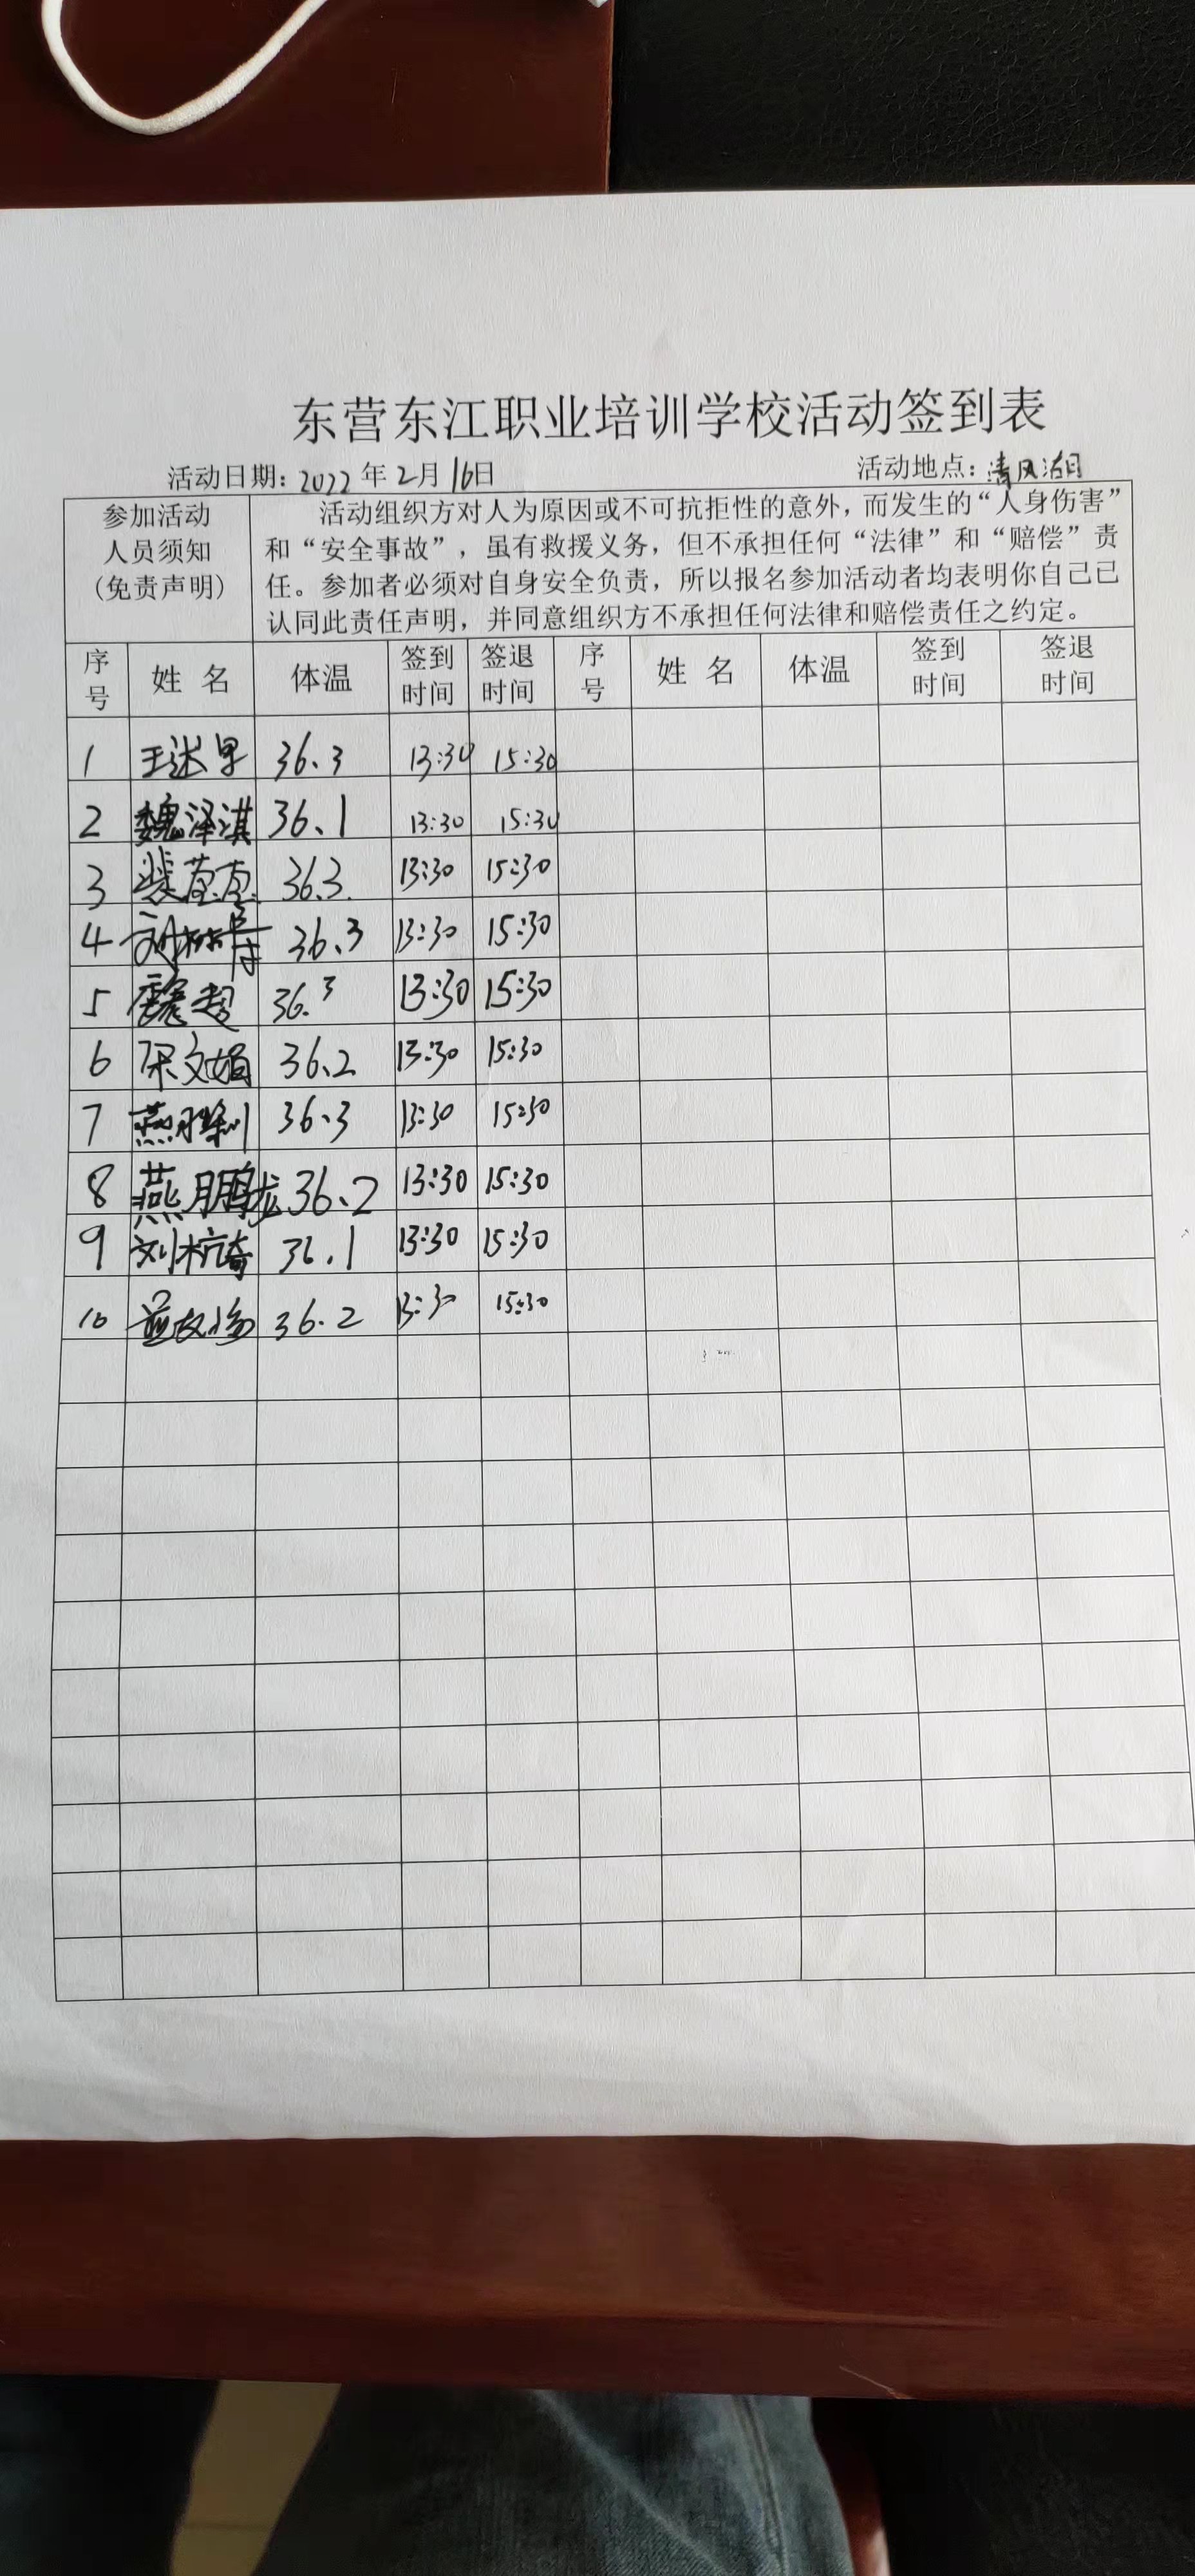 东营东江职业培训学校活动签到表
活动日期：2022年2月16日 活动地点：清风湖
参加活动人员须知(免责声明)
活动组织方对人为原因或不可抗拒性的意外，而发生的“人身伤害”
和“安全事故”，虽有救援义务，但不承担任何“法律”和“赔偿”责
任。参加者必须对自身安全负责，所以报名参加活动者均表明你自己已
认同此责任声明，并同意组织方不承担任何法律和赔偿责任之约定。
序号 姓名 体温 签到时间 签退时间 序号 姓名 体温 签到时间 签退时间
1 36.3 13:30 15:30
2 魏泽淇 36.1 13:30 15:30
3 36.3. 13:30 15:30
4 36.3 13:30 15:30
5 36.3 13:30 15:30
6 36.2 13:30 15:30
7 燕胜利 36.3 13:30 15:30
8 燕鹏龙 36.2 13:30 15:30
9 刘杭奇 36.1 13:30 15:30
10 36.2 13:30 15:30